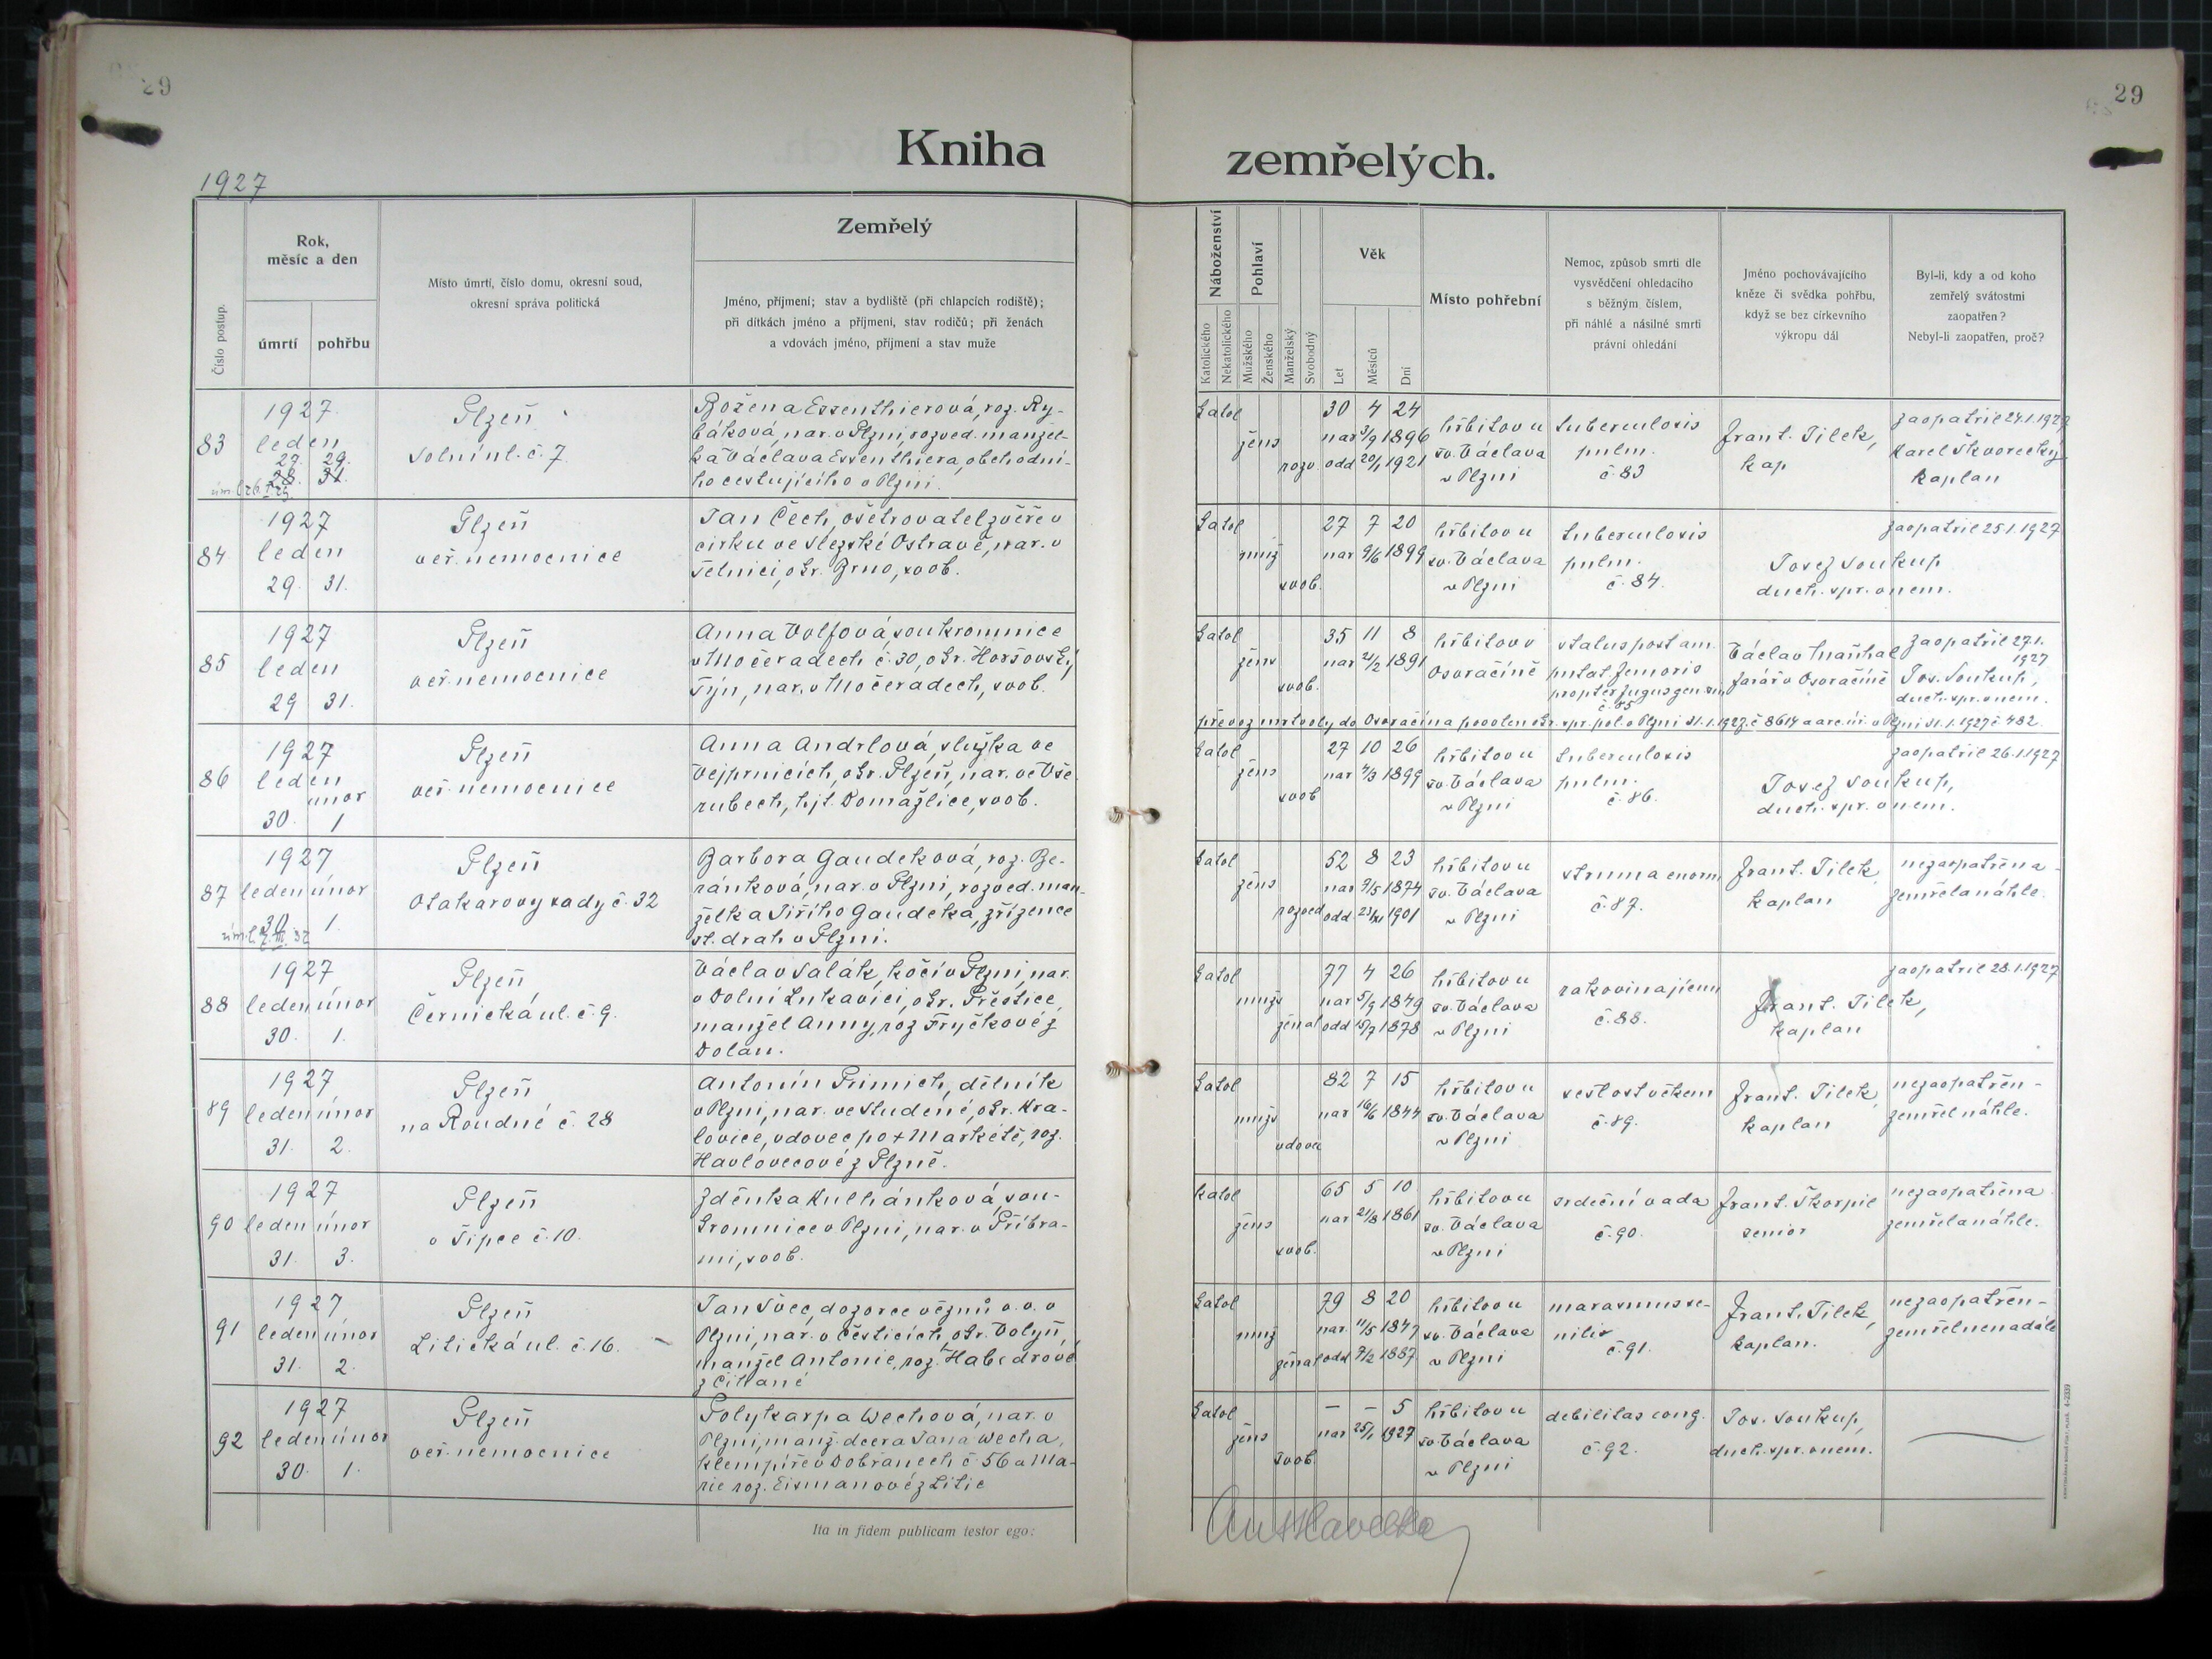 29
29
Kniha zemřelých.
1927
Číslo postup.
Rok,
měsíc a den
úmrtí
pohřbu
Místo úmrtí, číslo domu, okresní soud,
okresní správa politická
Zemřelý
Jméno, příjmení; stav a bydliště (při chlapcích rodiště);
při dítkách jméno a příjmení, stav rodičů; při ženách
a vdovách jméno, příjmení a stav muže
Náboženství
Katolického
Nekatolického
Pohlaví
Mužského
Ženského
Manželský
Svobodný
Věk
Let
Měsíců
Dní
Místo pohřební
Nemoc, způsob smrti dle
vysvědčení ohledacího
s běžným číslem,
při náhlé a násilné smrti
právní ohledání
Jméno pochovávajícího
kněze či svědka pohřbu,
když se bez církevního
výkropu dál
Byl-li, kdy a od koho
zemřelý svátostmi
zaopatřen?
Nebyl-li zaopatřen, proč?
83
1927
leden
27. 29.
28. 31.
Plzeň
Solní ul. č. 7
Božena Essenthierová, roz. Ry-
báková, nar. v Plzni, rozved. manžel-
ka Václava Essenthiera, obchodní-
ho cestujícího v Plzni.
katol
žens
rozv.
30 4 24
nar 3/9 1896
odd 20/1 1921
hřbitov u
sv. Václava
v Plzni
tuberculosis
pulm.
č. 83
Frant. Jilek,
kap
zaopatřil 24.1.1927
Karel Škvorecký
kaplan
84
1927
leden
29. 31.
Plzeň
veř. nemocnice
Jan Čech, ošetrovatel zvěře v
cirku ve Slezské Ostravě, nar. v
Telnici, okr. Brno, svob.
katol
muž
svob.
27 7 20
nar 9/6 1899
hřbitov u
sv. Václava
v Plzni
tuberculosis
pulm.
č. 84.
Josef Soukup
duch. spr. v nem.
zaopatřil 25.1.1927
85
1927
leden
29 31.
Plzeň
veř. nemocnice
Anna Volfová soukromnice
v Močeradech č. 30, okr. Horšovský
Týn, nar. v Močeradech, svob.
katol
žens
svob.
35 11 8
nar 21/2 1891
hřbitov v
Osvračíně
status post am-
putat. femoris
č. 85
Václav Maňhal
farář v Osvračíně
zaopatřil 27.1.
1927
Jos. Soukup,
duch. spr. v nem.
převoz mrtvoly do Osvračína povolen okr. spr. pol. v Plzni 31.1.1927 č 8614 a arc. úř. v Plzni 31.1.1927 č 482.
86
1927
leden
únor
30. 1
Plzeň
veř. nemocnice
Anna Andrlová, služka ve
Vejprnicích, okr. Plzeň, nar. ve Vše-
rubech, hjt. Domažlice, svob.
katol
žens
svob
27 10 26
nar 4/3 1899
hřbitov u
sv. Václava
v Plzni
tuberculosis
pulm.
č. 86.
Josef Soukup,
duch. spr. v nem.
zaopatřil 26.1.1927
87
1927
leden únor
30. 1.
Plzeň
Otakarovy sady č. 32
Barbora Gaudeková, roz. Be-
ránková, nar. v Plzni, rozved. man-
želka Jiřího Gaudeka, zřízence
st. drah v Plzni.
katol
žens
rozved
52 8 23
nar 9/5 1874
odd 23/XI 1901
hřbitov u
sv. Václava
v Plzni
struma enorm,
č. 87.
Frant. Jilek
kaplan
nezaopatřena -
zemřela náhle.
88
1927
leden únor
30. 1.
Plzeň
Černická ul. č. 9.
Václav Salák, kočí v Plzni, nar.
v Dolní Lukavici, okr. Přeštice,
manžel Anny, roz Fryčkové z
Dolan.
katol
mužs
ženat
77 4 26
nar 5/9 1849
odd 15/7 1878
hřbitov u
sv. Václava
v Plzni
rakovina jícnu
č. 88.
Frant. Jilek,
kaplan
zaopatřil 28.1.1927
89
1927
leden únor
31. 2.
Plzeň
na Roudné č. 28
Antonín Primich, dělník
v Plzni, nar. ve Studené, okr. Kra-
lovice, vdovec po + Markétě, roz.
Havlovecové z Plzně.
katol
mužs
vdovec
82 7 15
nar 16/6 1844
hřbitov u
sv. Václava
v Plzni
sešlost věkem
č. 89.
Frant. Jilek
kaplan
nezaopatřen -
zemřel náhle.
90
1927
leden únor
31. 3.
Plzeň
v Šipce č. 10.
Zdenka Kulhánková, sou-
kromnice v Plzni, nar. v Příbra-
mi, svob.
katol
žens
svob.
65 5 10
nar 21/8 1861
hřbitov u
sv. Václava
v Plzni
srdeční vada
č. 90.
Frant. Škorpil
senior
nezaopatřena
zemřela náhle.
91
1927
leden únor
31. 2.
Plzeň
Litická ul. č. 16.
Jan Švec, dozorce vězňů v. v. v
Plzni, nar. v Česticích, okr. Volyň,
manžel Antonie, roz. Habedrové
z Čihané
katol
muž
ženat
79 8 20
nar. 11/5 1847
odd 7/2 1887
hřbitov u
sv. Václava
v Plzni
marasmus se-
nilis
č. 91.
Frant. Jilek,
kaplan.
nezaopatřen -
zemřel nenadále
92
1927
leden únor
30. 1.
Plzeň
veř. nemocnice
Polykarpa Wechová, nar. v
Plzni, manž. dcera Jana Wecha,
klempíře v Dobřanech č. 56 a Ma-
rie roz. Eismanové z Litic
katol
žens
svob.
— — 5
nar 25/1 1927
hřbitov u
sv. Václava
v Plzni
debilitas cong.
č. 92.
Jos. Soukup,
duch. spr. v nem.
Ita in fidem publicam testor ego:
Ant Havelka